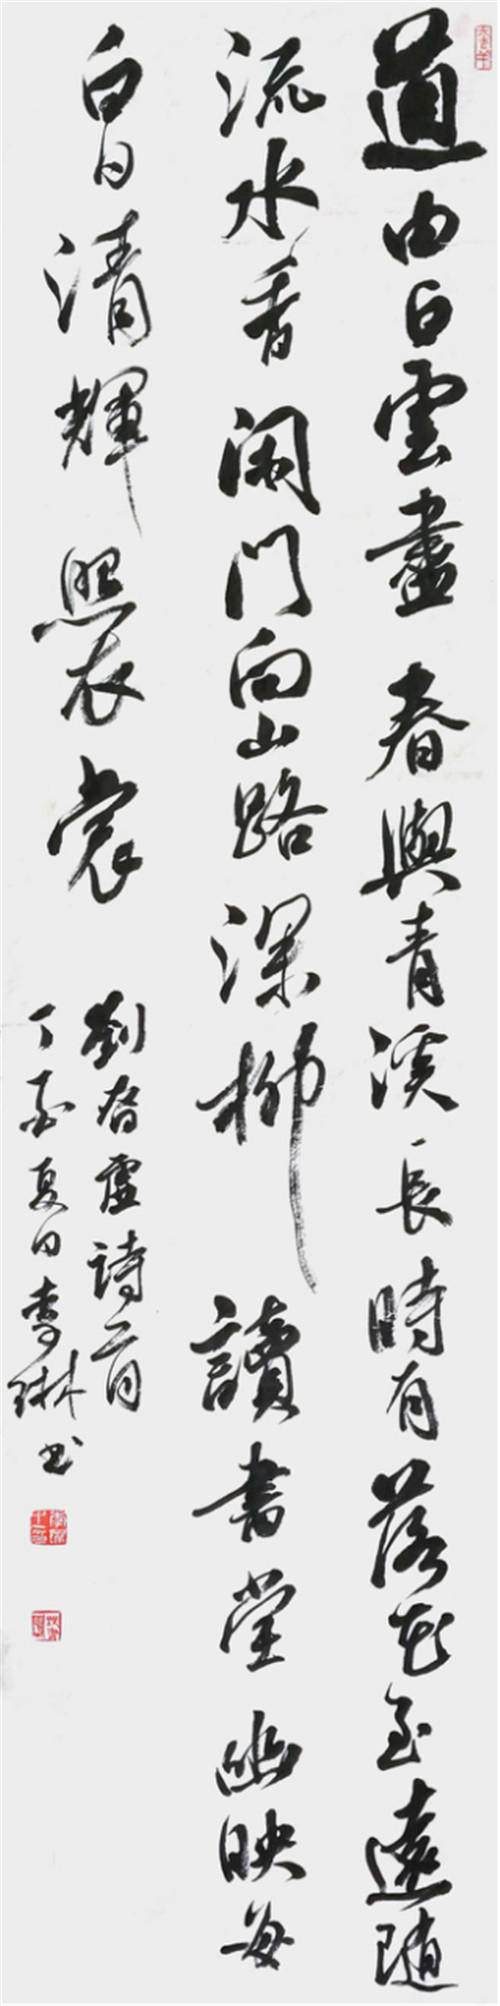 道由白雲盡春與青溪長時有落花至遠隨
流水香閑門向山路深柳讀書堂幽映每
白日清輝照衣裳
劉眘虛詩一首
丁酉夏日李琳书